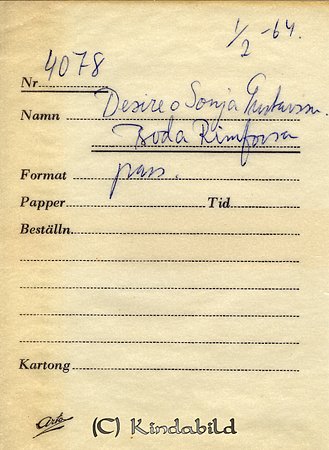 1/2 -64.
Nr 4078
Namn Desire o Sonja Gustavsson
Boda Rimforsa
Format pass.
Papper Tid
Beställn.
Kartong
Ark
(C) Kindabild